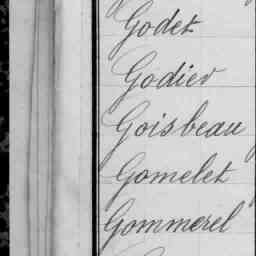 Godet
Godier
Goisbeau
Gomelet
Gommerel